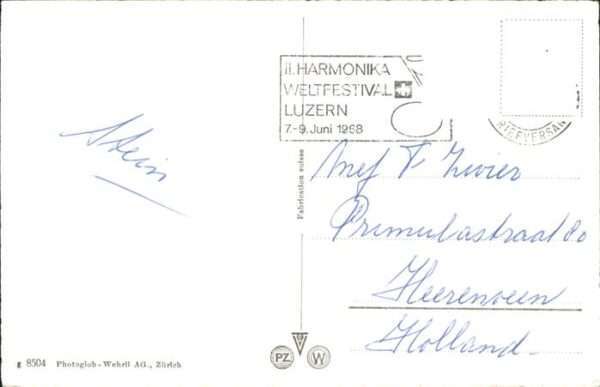 II. HARMONIKA
WELTFESTIVAL
LUZERN
7.-9. Juni 1968
BRIEFVERSAN
Stein
Fabrication suisse
Mef T Zwier
Primulastraat 80
Heerenveen
Holland
g 8504 Photoglob-Wehrli AG., Zürich
PZ W